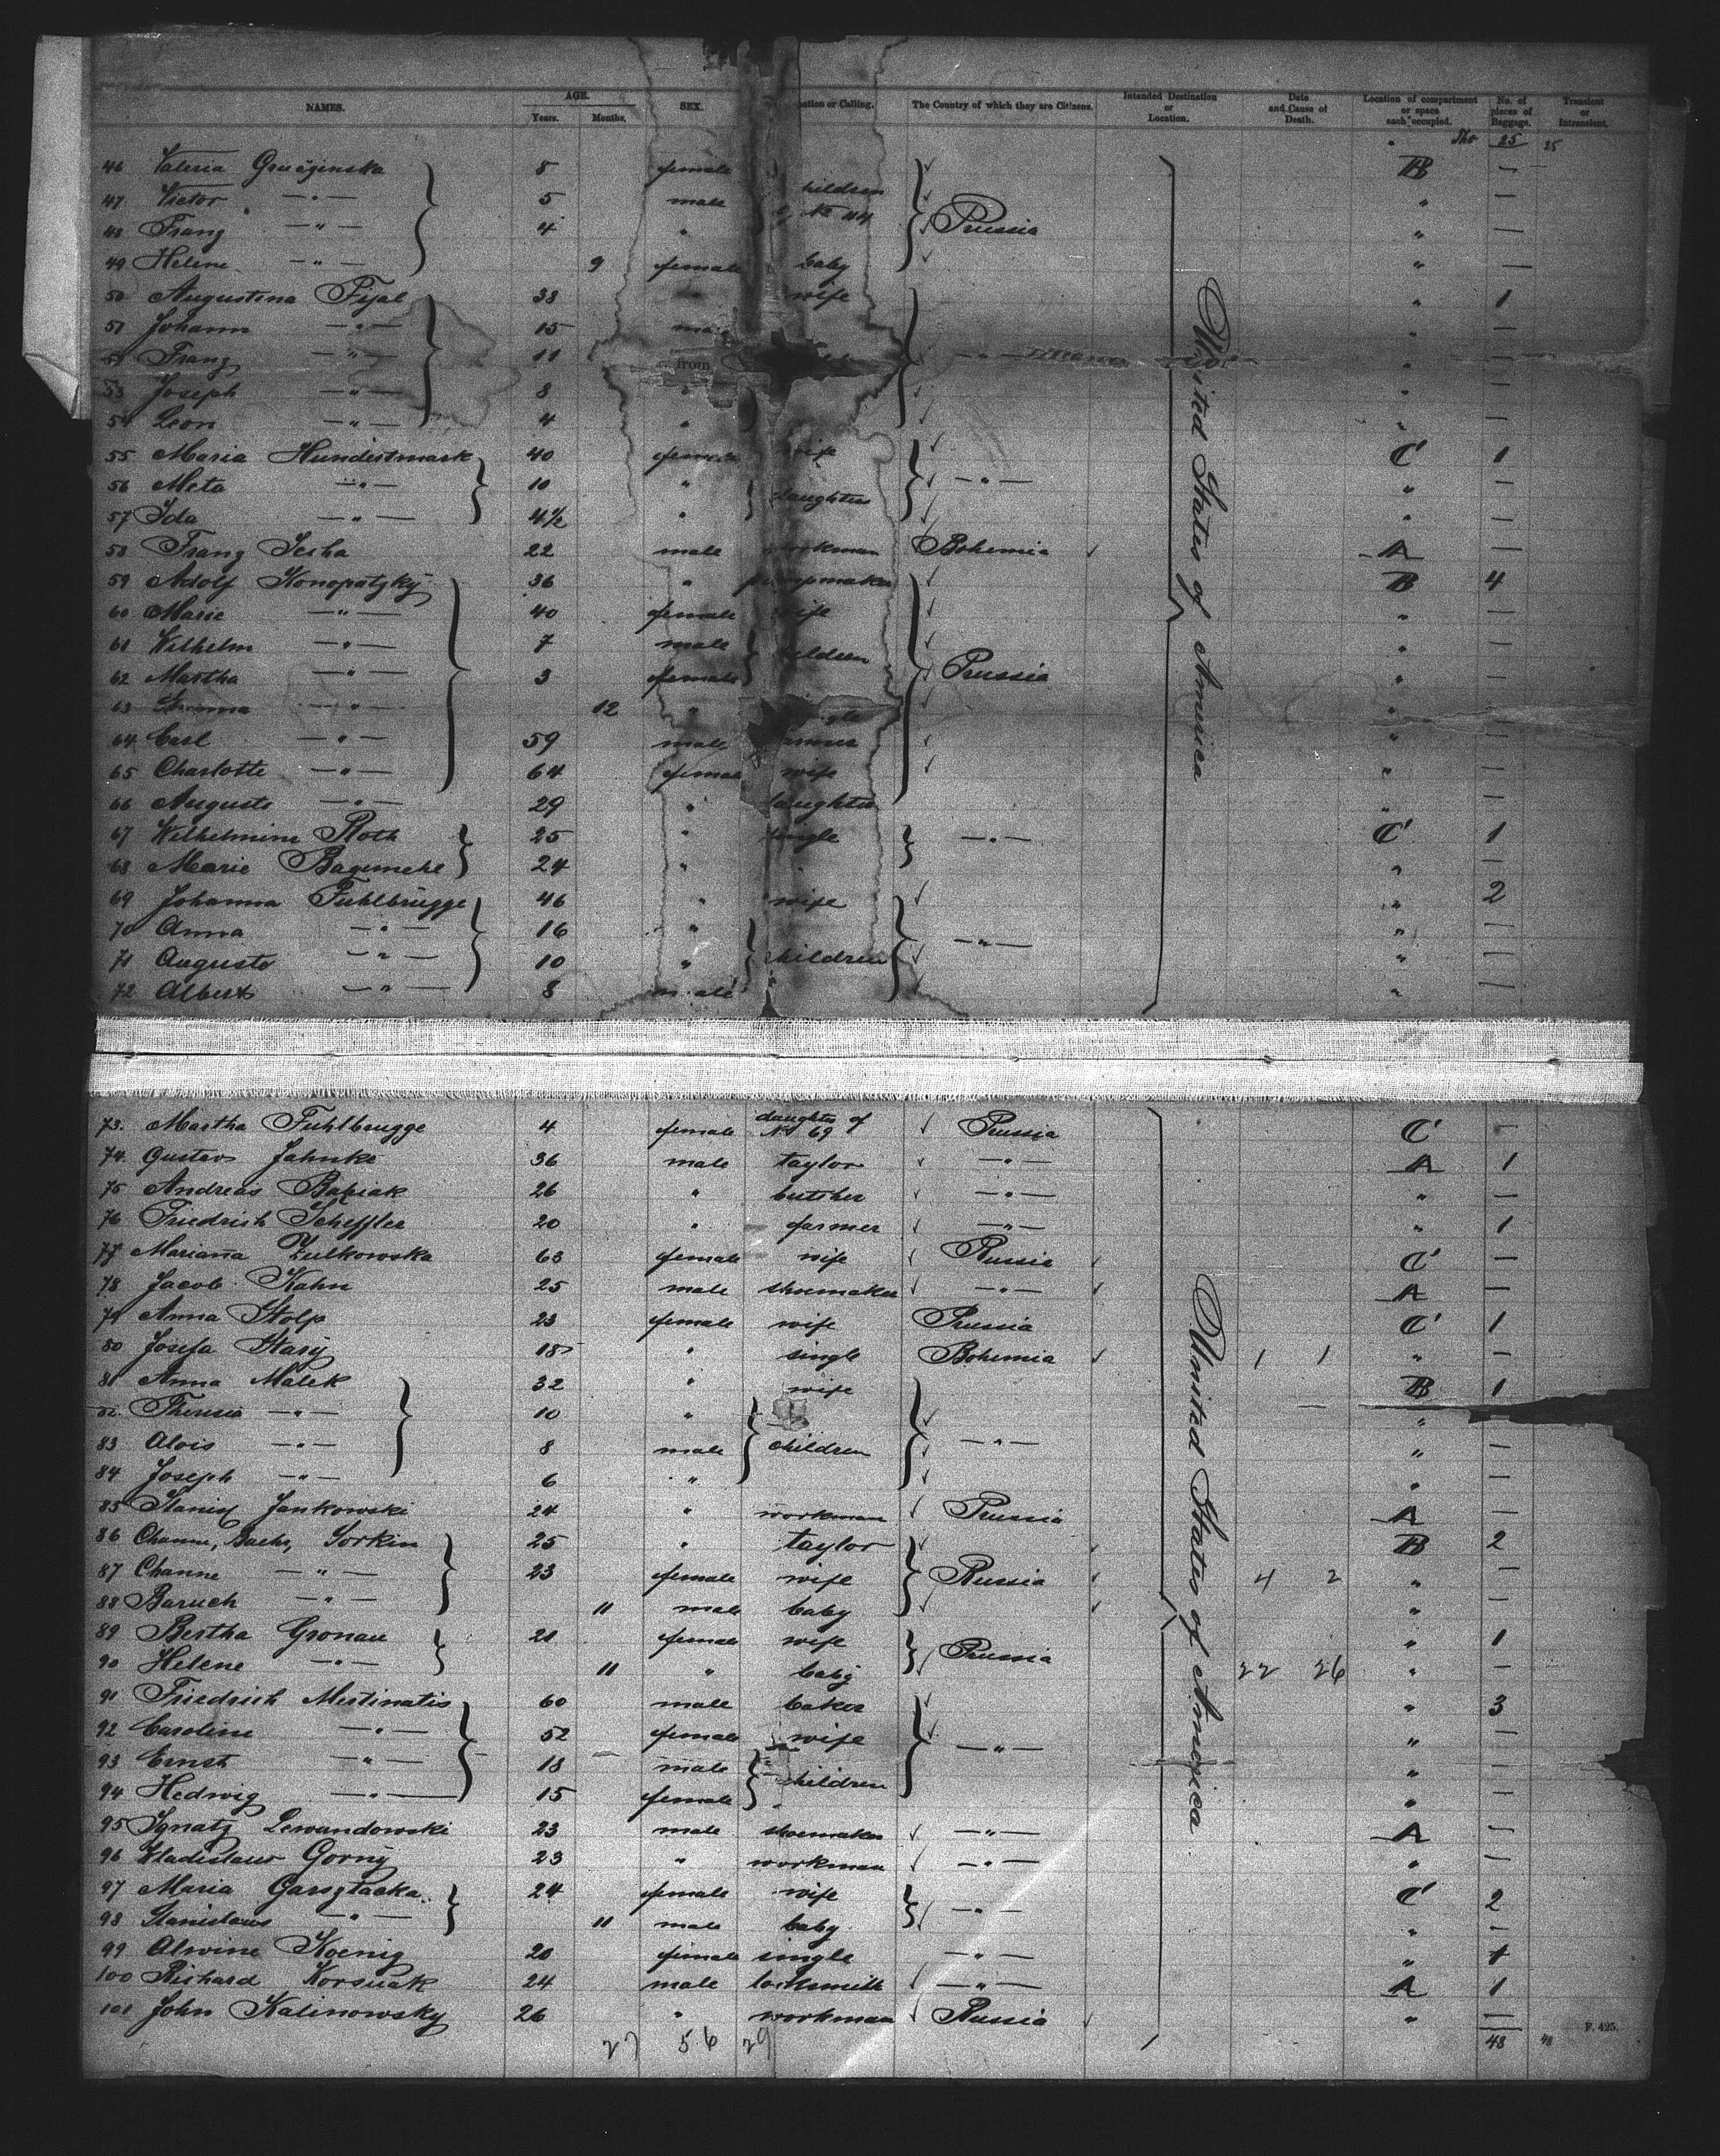 NAMES. AGE. Years. Months. SEX. ation or Calling. The Country of which they are Citizens. Intended Destination or Location. Date and Cause of Death. Location of compartment or space each occupied. No. of pieces of Baggage. Transient or Intransient.
25 25
46 Valeria 8 female B —
47 Victor —"— 5 male children " —
48 Franz —"— 4 " Prussia " —
49 Helene —"— 9 female baby " —
50 Augustina Fijal 38 wife " 1
51 Johann —"— 15 " —
52 Franz —"— 11 from —"— " —
53 Joseph —"— 8 " " —
54 Leon —"— 4 " " —
55 Maria Hundertmark 40 female wife C 1
56 Meta —"— 10 " daughters —"— " —
57 Ida —"— 4½ " " —
58 Franz 22 male workman Bohemia A —
59 Adolf Konopatzky 36 " B 4
60 Marie —"— 40 female wife " —
61 Wilhelm —"— 7 male children " —
62 Martha —"— 3 female Prussia " —
63 —"— 12 " "
64 Carl —"— 59 male farmer " —
65 Charlotte —"— 64 female wife " —
66 Auguste —"— 29 " daughter " —
67 Wilhelmine Roth 25 " single —"— C 1
68 Marie Bagemehl 24 " " —
69 Johanna Fuhlbrügge 46 " wife " 2
70 Anna —"— 16 " —"— " —
71 Auguste —"— 10 " children " —
72 Albert —"— 8 male " —
United States of America
73. Martha Fuhlbrugge 4 female daughter of No 69 Prussia C —
74. Gustav Jahnke 36 male taylor —"— A 1
75 Andreas Babiak 26 " butcher —"— " —
76 Friedrich Scheffler 20 " farmer —"— " 1
77 Marianna Zulkowska 63 female wife Russia C —
78 Jacob Kahn 25 male shoemaker —"— A —
79 Anna Stolp 23 female wife Prussia C 1
80 Josefa Stary 18 " single Bohemia 1 1 " —
81 Anna Malek 32 " wife B 1
82. Theresia —"— 10 " "
83 Alois —"— 8 male children —"— " —
84 Joseph —"— 6 " " —
85 Stanisl Jankowski 24 " workman Prussia A —
86 Sorkin 25 " taylor B 2
87 Channe —"— 23 female wife Russia 4 2 " —
88 Baruch —"— 11 male baby " —
89 Bertha Gronau 21 female wife Prussia " 1
90 Helene —"— 11 " baby 22 26 " —
91 Friedrich Mestinatis 60 male baker " 3
92 Caroline —"— 52 female wife —"— " —
93 Ernst —"— 18 male children " —
94 Hedwig —"— 15 female " —
95 Ignatz Lewandowski 23 male shoemaker —"— A —
96 Wladislaus Gorny 23 " workman —"— " —
97 Maria Garsztacka 24 female wife —"— C 2
98 Stanislaus —"— 11 male baby " —
99 Alwine Koenig 20 female single —"— " 1
100 Richard Korsuak 24 male locksmith —"— A 1
101 John Kalinowsky 26 " workman Russia " —
United States of America
27 56 29 48 48
F. 425.